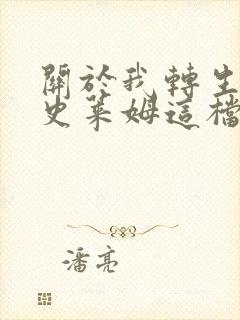 關於我轉生
史萊姆這檔
潘亮